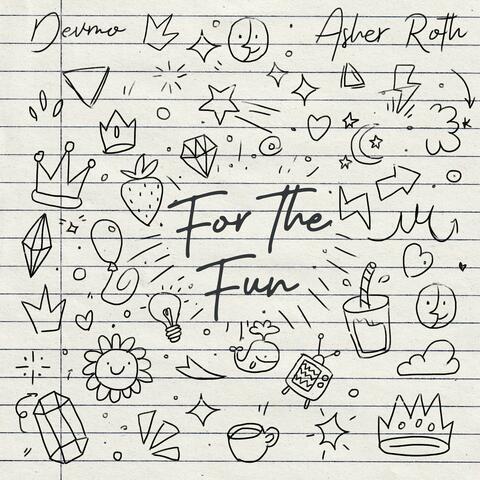 Devmo
Asher Roth
For The
Fun